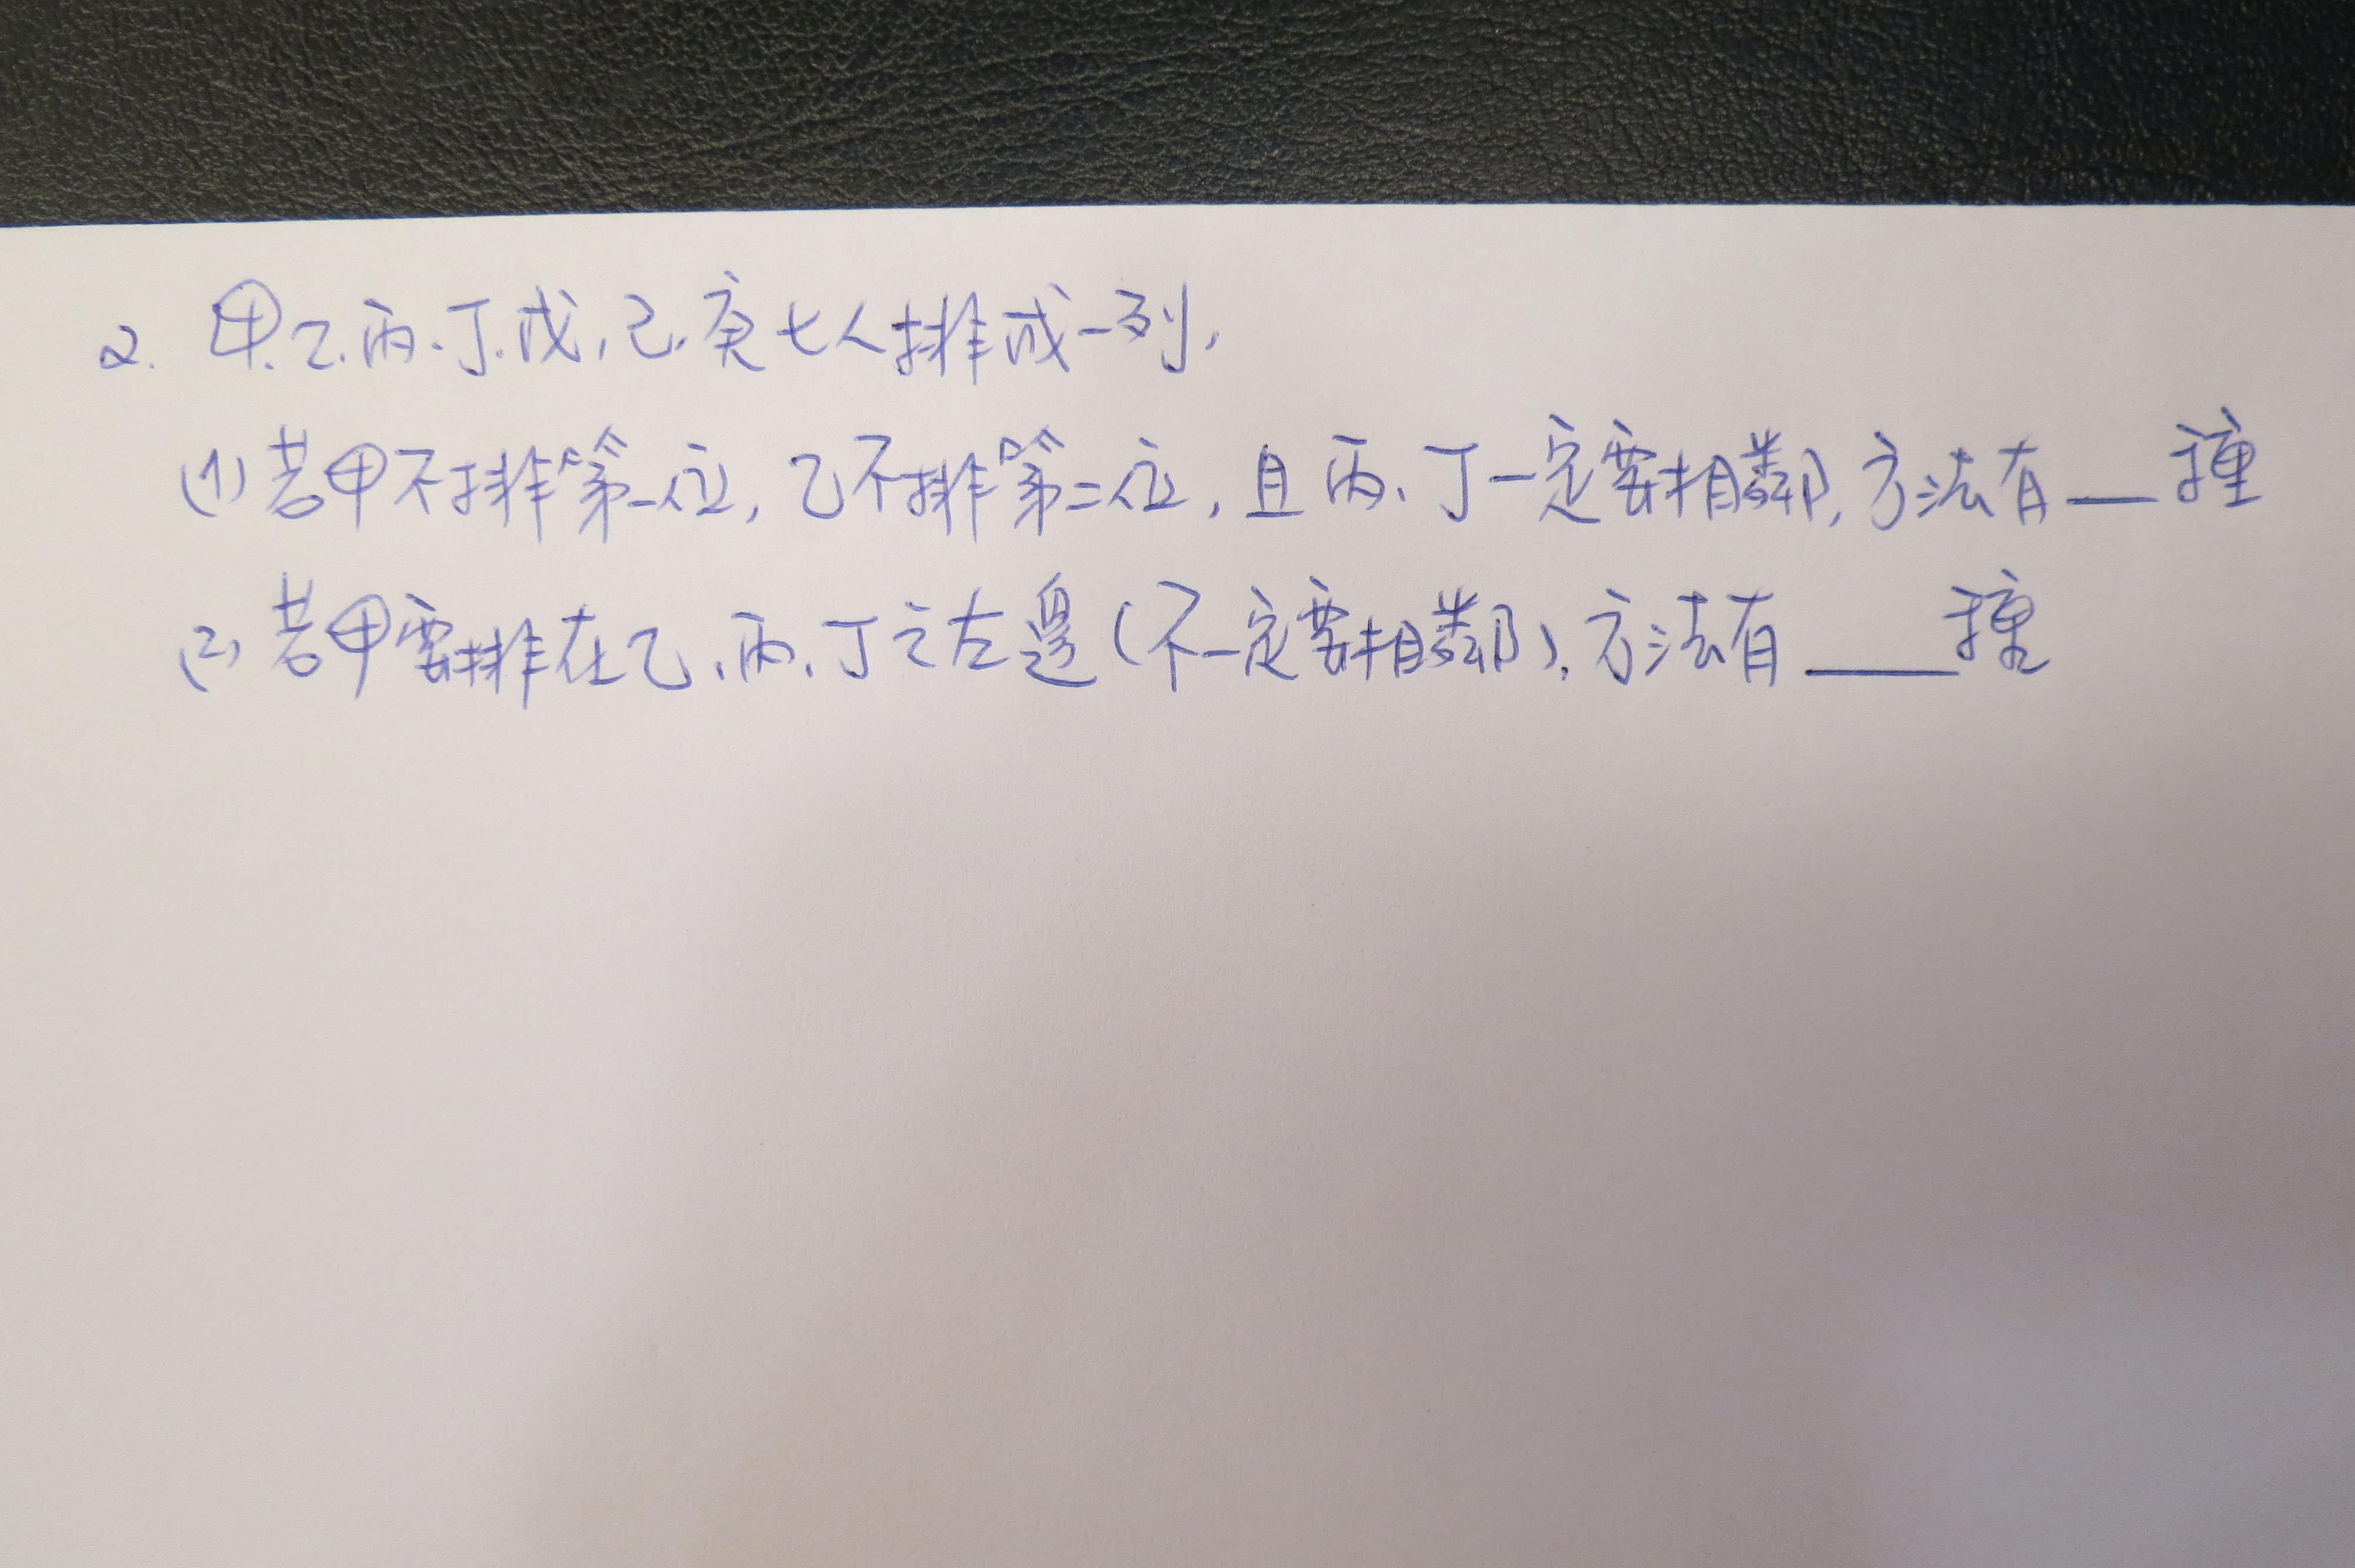 2. 甲.乙.丙.丁.戊,己.庚七人排成一列,
(1) 若甲不排第一位, 乙不排第二位, 且丙、丁一定要相鄰, 方法有__種
(2) 若甲要排在乙、丙、丁之左邊(不一定要相鄰), 方法有___種